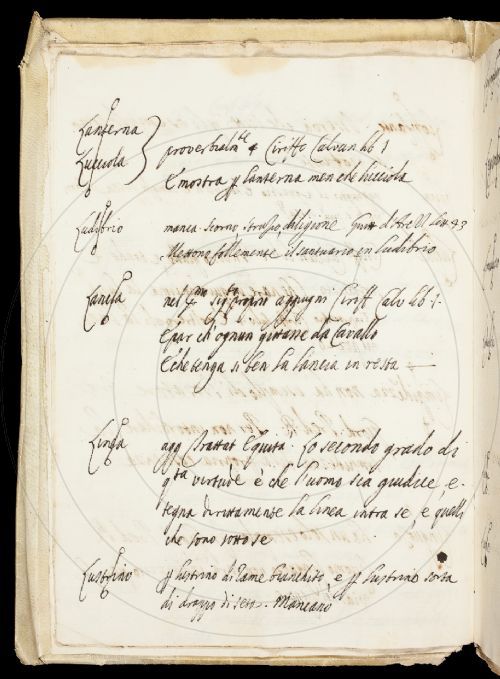 Lanterna
Lucciola
proverbialm.te + Ciriffo Calvan lib 1
E' mostra p lanterna men che lucciola
Ludibrio manca. Scorno, strazio, diligione Guitt d'Are
Mettono follemente il santuario en ludibrio
Lancia nel aggiugni Ciriff Calv lib 1.
E par ch'ognun giostante da cavallo
E che tenga si ben la lancia in resta
Linea agg Trattat Equità. Lo secondo grado di
q.ta virtude è che l'uomo sia giudice, e
tegna dirittamente la linea intra se, e quelli
che sono sotto se
Lustrino p lustrino di rame bianchito, e p lustrino sorta
di drappo di seta. Mancano